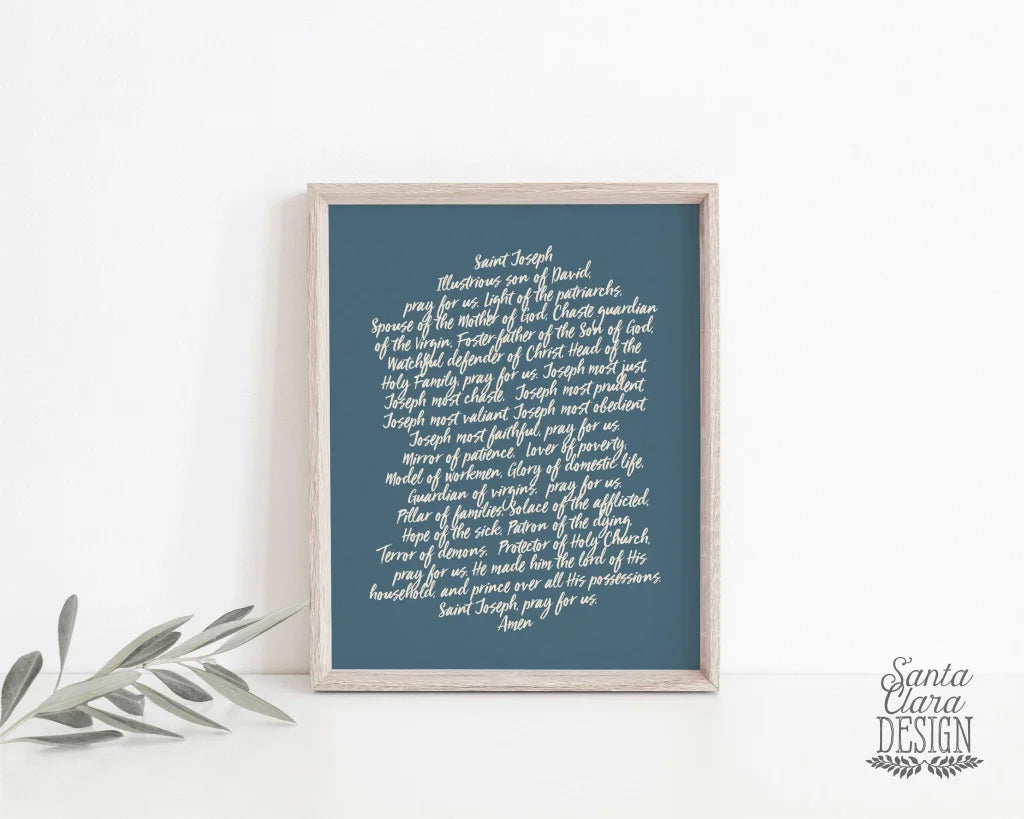 Saint Joseph
Illustrious son of David,
pray for us. Light of the patriarchs,
Spouse of the Mother of God, Chaste guardian
of the Virgin, Foster father of the Son of God,
Watchful defender of Christ Head of the
Holy Family, pray for us. Joseph most just
Joseph most chaste, Joseph most prudent
Joseph most valiant, Joseph most obedient
Joseph most faithful, pray for us.
Mirror of patience, Lover of poverty,
Model of workmen, Glory of domestic life,
Guardian of virgins, pray for us.
Pillar of families, Solace of the afflicted,
Hope of the sick, Patron of the dying
Terror of demons, Protector of Holy Church,
pray for us. He made him the lord of His
household, and prince over all His possessions.
Saint Joseph, pray for us.
Amen
Santa
Clara
DESIGN